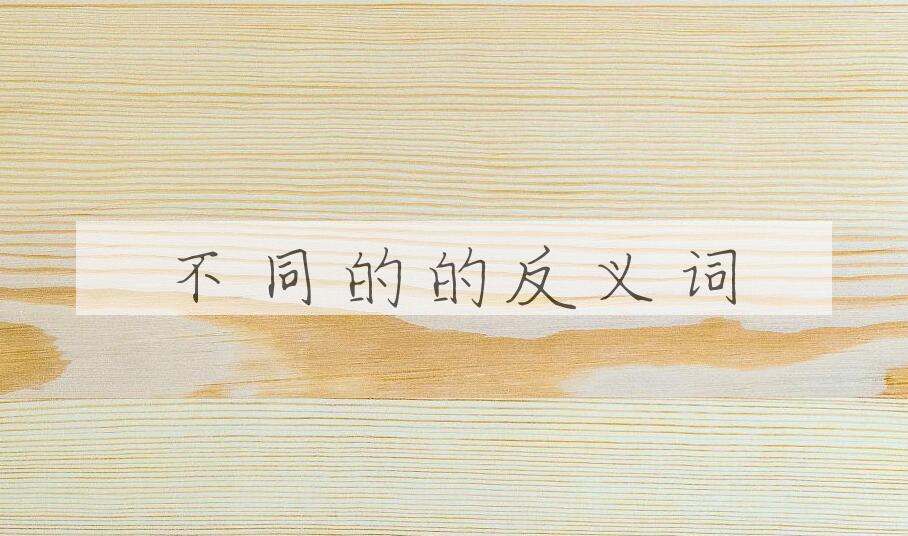 不同的的反义词